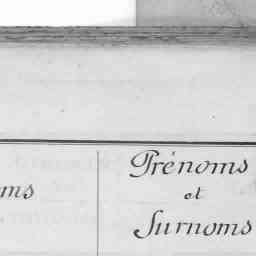 Prénoms
ms
et
Surnoms